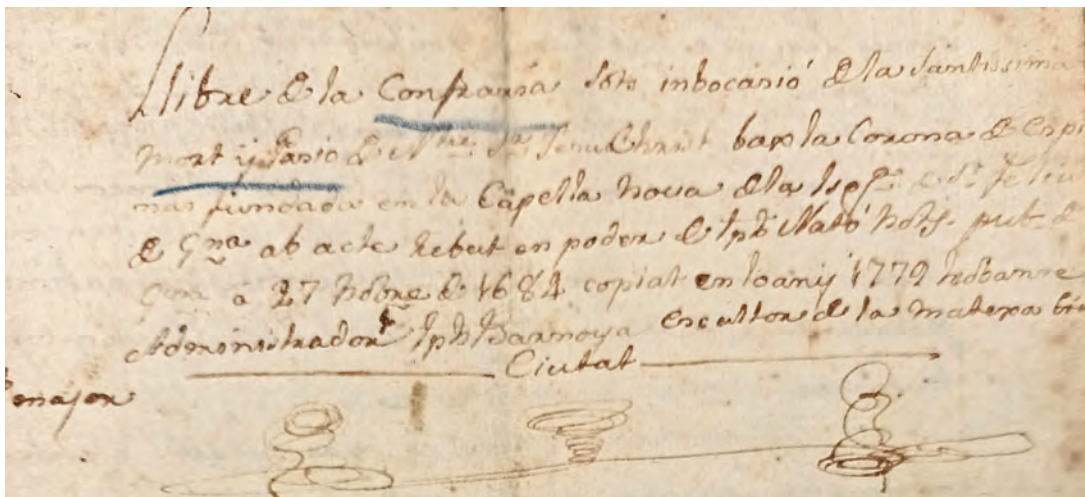 Llibre de la Confraria sots inbocasió de la Santissima
Mort y Pasió de Ntre. Sr. Jesu Christ bax la Corona de Espi
nas fundada en la Capella nova de la Isgª. de St. Feliu
de Gna ab acte rebut en poder de Iph Nató Notj. pub. de
Gna a 27 Nobre de 1684 copiat en lo anij 1772 trobanse
Administrador Iph Barnoya Escultor de la matexa
Ciutat